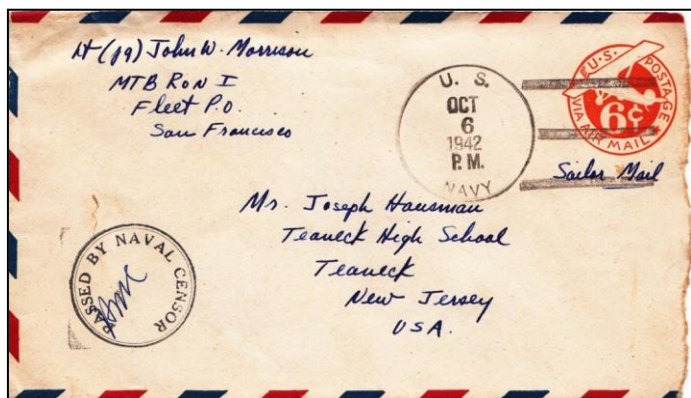 Lt (jg) John W. Morrison
MTB Ron I
Fleet P.O.
San Francisco
U. S.
OCT
6
1942
P.M.
NAVY
U.S. POSTAGE
6¢
VIA AIR MAIL
Sailor Mail
Mr. Joseph Hausman
Teaneck High School
Teaneck
New Jersey
USA.
PASSED BY NAVAL CENSOR